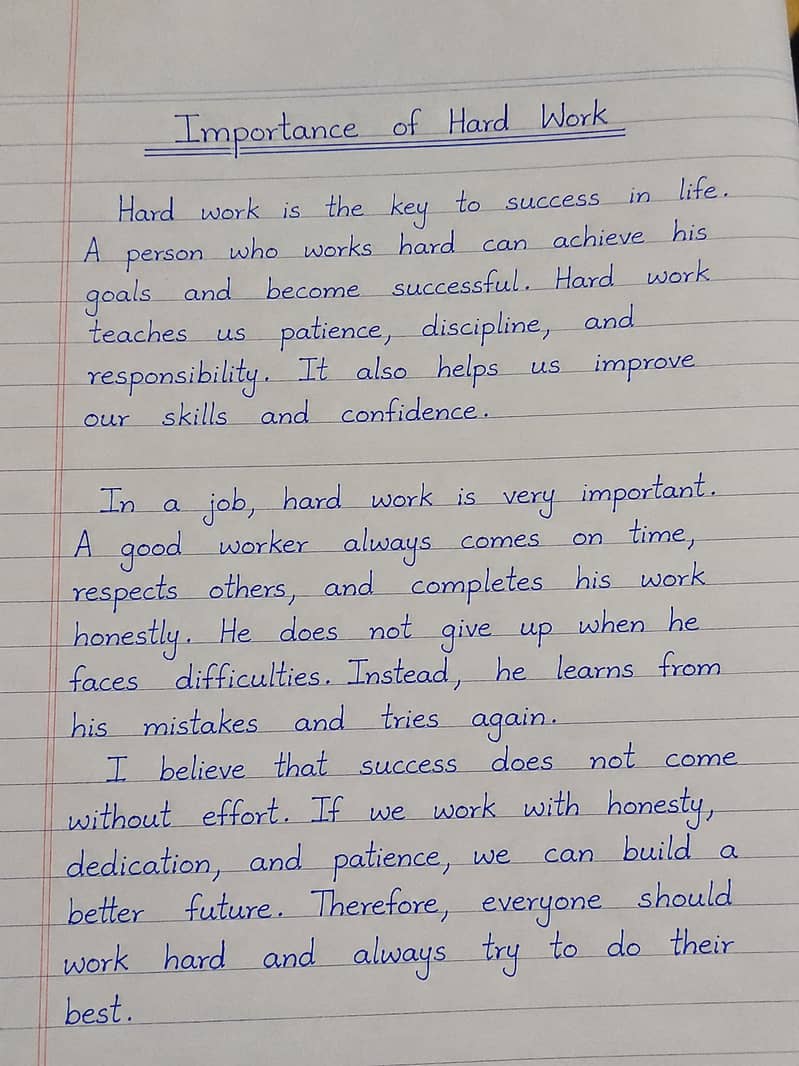 Importance of Hard Work
Hard work is the key to success in life.
A person who works hard can achieve his
goals and become successful. Hard work
teaches us patience, discipline, and
responsibility. It also helps us improve
our skills and confidence.
In a job, hard work is very important.
A good worker always comes on time,
respects others, and completes his work
honestly. He does not give up when he
faces difficulties. Instead, he learns from
his mistakes and tries again.
I believe that success does not come
without effort. If we work with honesty,
dedication, and patience, we can build a
better future. Therefore, everyone should
work hard and always try to do their
best.